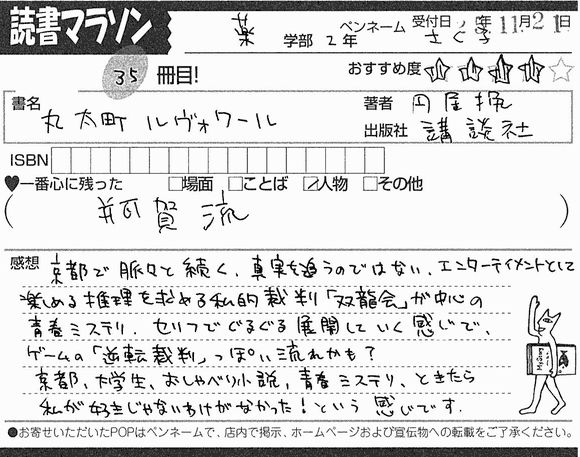 読書マラソン
薬 学部 2年
ペンネーム さく子
受付日 年11月21日
35 冊目!
おすすめ度
書名 丸太町 ルヴォワール
著者 円居挽
出版社 講談社
ISBN
♥一番心に残った □場面 □ことば ☑人物 □その他
( 賀 流 )
感想 京都で脈々と続く、真実を追うのではない、エンターテイメントとして
楽める推理を求める私的裁判「双龍会」が中心の
青春ミステリ. セリフでぐるぐる展開していく感じで、
ゲームの「逆転裁判」っぽい流れかも?
京都、大学生、おしゃべり小説、青春ミステリ、ときたら
私が好きじゃないわけがなかった!という感じです.
●お寄せいただいたPOPはペンネームで、店内で掲示、ホームページおよび宣伝物への転載をご了承ください。